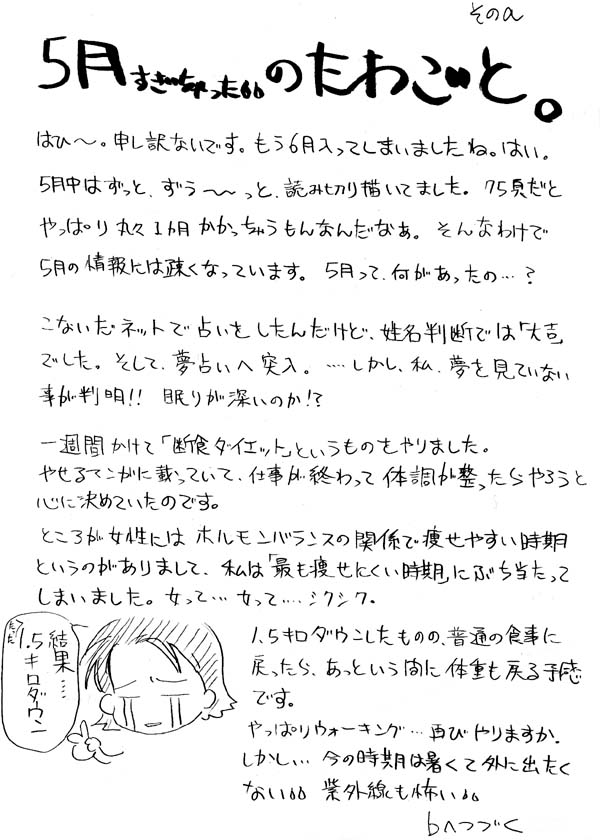 そのa
5月すぎちゃった。。のたわごと。
はひ〜。申し訳ないです。もう6月入ってしまいましたね。はい。
5月中はずっと、ずう〜〜っと、読み切り描いてました。75頁だと
やっぱり丸々1ヵ月かかっちゃうもんなんだなぁ。そんなわけで
5月の情報には疎くなっています。5月って、何があったの…?
こないだネットで占いをしたんだけど、姓名判断では「大吉」
でした。そして、夢占いへ突入。‥‥しかし、私、夢を見ていない
事が判明!!眠りが深いのか!?
一週間かけて「断食ダイエット」というものをやりました。
やせるマンがに載っていて、仕事が終わって体調が整ったらやろうと
心に決めていたのです。
ところが女性にはホルモンバランスの関係で痩せやすい時期
というのがありまして、私は「最も痩せにくい時期」にぶち当たって
しまいました。女って…女って…シクシク。
結果……
たった
1.5
キロダウン
1.5キロダウンしたものの、普通の食事に
戻ったら、あっという間に体重も戻る予感
です。
やっぱりウォーキング…再びやりますか。
しかし…今の時期は暑くて外に出たく
ない。。紫外線も怖い。。
bへつづく